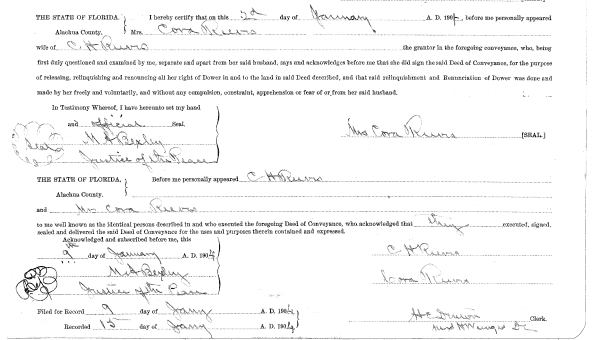 THE STATE OF FLORIDA. } I hereby certify that on this 2d day of January A. D. 1904, before me personally appeared
Alachua County. Mrs Cora Reeves
wife of C. H Reeves the grantor in the foregoing conveyance, who, being
first duly questioned and examined by me, separate and apart from her said husband, says and acknowledges before me that she did sign the said Deed of Conveyance, for the purpose
of releasing, relinquishing and renouncing all her right of Dower in and to the land in said Deed described, and that said relinquishment and Renunciation of Dower was done and
made by her freely and voluntarily, and without any compulsion, constraint, apprehension or fear of or from her said husband.
In Testimony Whereof, I have hereunto set my hand
and official Seal.
Seal M A Bexley Mrs Cora Reeves [SEAL.]
Justice of the Peace
THE STATE OF FLORIDA. } Before me personally appeared C H Reeves
Alachua County.
and Mrs Cora Reeves
to me well known as the identical persons described in and who executed the foregoing Deed of Conveyance, who acknowledged that they executed, signed,
sealed and delivered the said Deed of Conveyance for the uses and purposes therein contained and expressed.
Acknowledged and subscribed before me, this
9th day of January A. D. 1904 C H Reeves
M A Bexley
Cora Reeves
Justice of the Peace
Filed for Record 9 day of Jany A. D. 1904
Clerk.
Recorded 15 day of Jany A. D. 1904